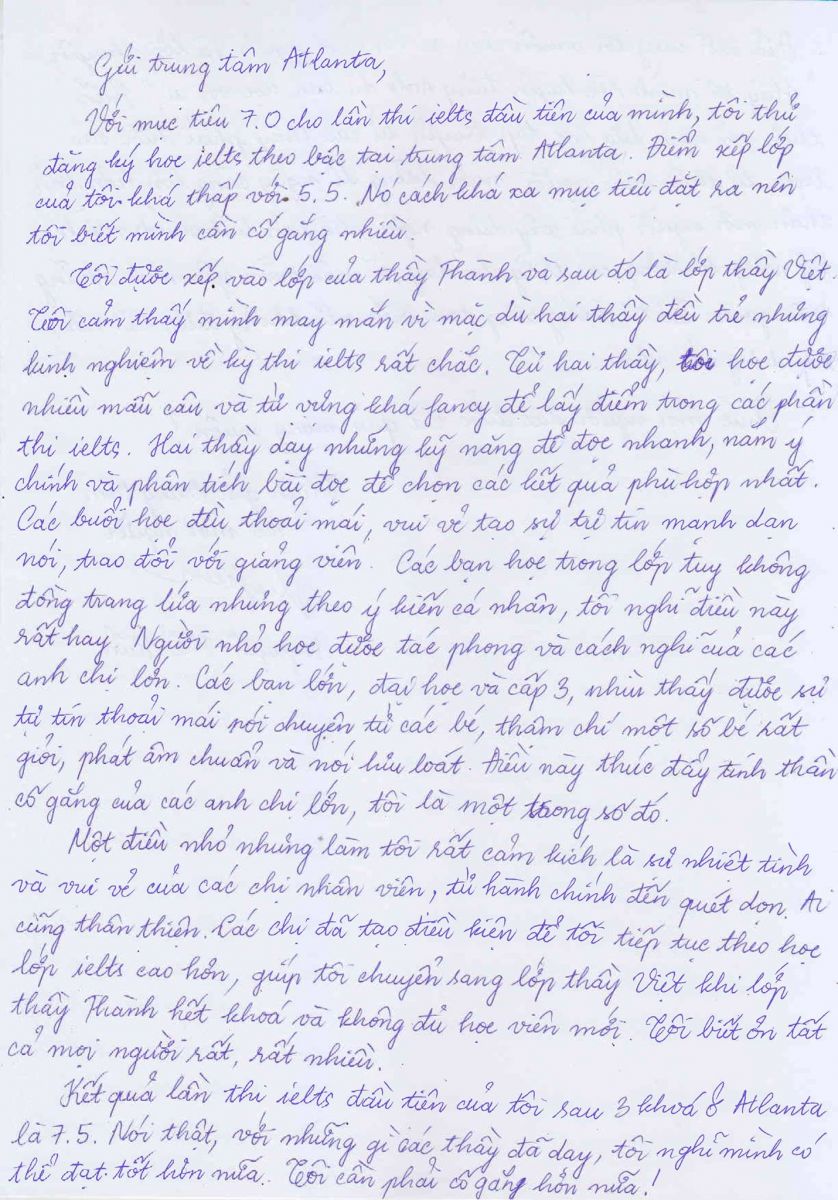 Gửi trung tâm Atlanta,
Với mục tiêu 7.0 cho lần thi ielts đầu tiên của mình, tôi thử
đăng ký học ielts theo bậc tại trung tâm Atlanta. Điểm xếp lớp
của tôi khá thấp với 5.5. Nó cách khá xa mục tiêu đặt ra nên
tôi biết mình cần cố gắng nhiều.
Tôi được xếp vào lớp của thầy Thành và sau đó là lớp thầy Việt.
Tôi cảm thấy mình may mắn vì mặc dù hai thầy đều trẻ nhưng
kinh nghiệm về kỳ thi ielts rất chắc. Từ hai thầy, tôi học được
nhiều mẫu câu và từ vựng khá fancy để lấy điểm trong các phần
thi ielts. Hai thầy dạy những kỹ năng để đọc nhanh, nắm ý
chính và phân tích bài đọc để chọn các kết quả phù hợp nhất.
Các buổi học đều thoải mái, vui vẻ tạo sự tự tin mạnh dạn
nói, trao đổi với giảng viên. Các bạn học trong lớp tuy không
đồng trang lứa nhưng theo ý kiến cá nhân, tôi nghĩ điều này
rất hay. Người nhỏ học được tác phong và cách nghĩ của các
anh chị lớn. Các bạn lớn, đại học và cấp 3, nhìn thấy được sự
tự tin thoải mái nói chuyện từ các bé, thậm chí một số bé rất
giỏi, phát âm chuẩn và nói lưu loát. Điều này thúc đẩy tinh thần
cố gắng của các anh chị lớn, tôi là một trong số đó.
Một điều nhỏ nhưng làm tôi rất cảm kích là sự nhiệt tình
và vui vẻ của các chị nhân viên, từ hành chính đến quét dọn. Ai
cũng thân thiện. Các chị đã tạo điều kiện để tôi tiếp tục theo học
lớp ielts cao hơn, giúp tôi chuyển sang lớp thầy Việt khi lớp
thầy Thành hết khoá và không đủ học viên mới. Tôi biết ơn tất
cả mọi người rất, rất nhiều.
Kết quả lần thi ielts đầu tiên của tôi sau 3 khoá ở Atlanta
là 7.5. Nói thật, với những gì các thầy đã dạy, tôi nghĩ mình có
thể đạt tốt hơn nữa. Tôi cần phải cố gắng hơn nữa!